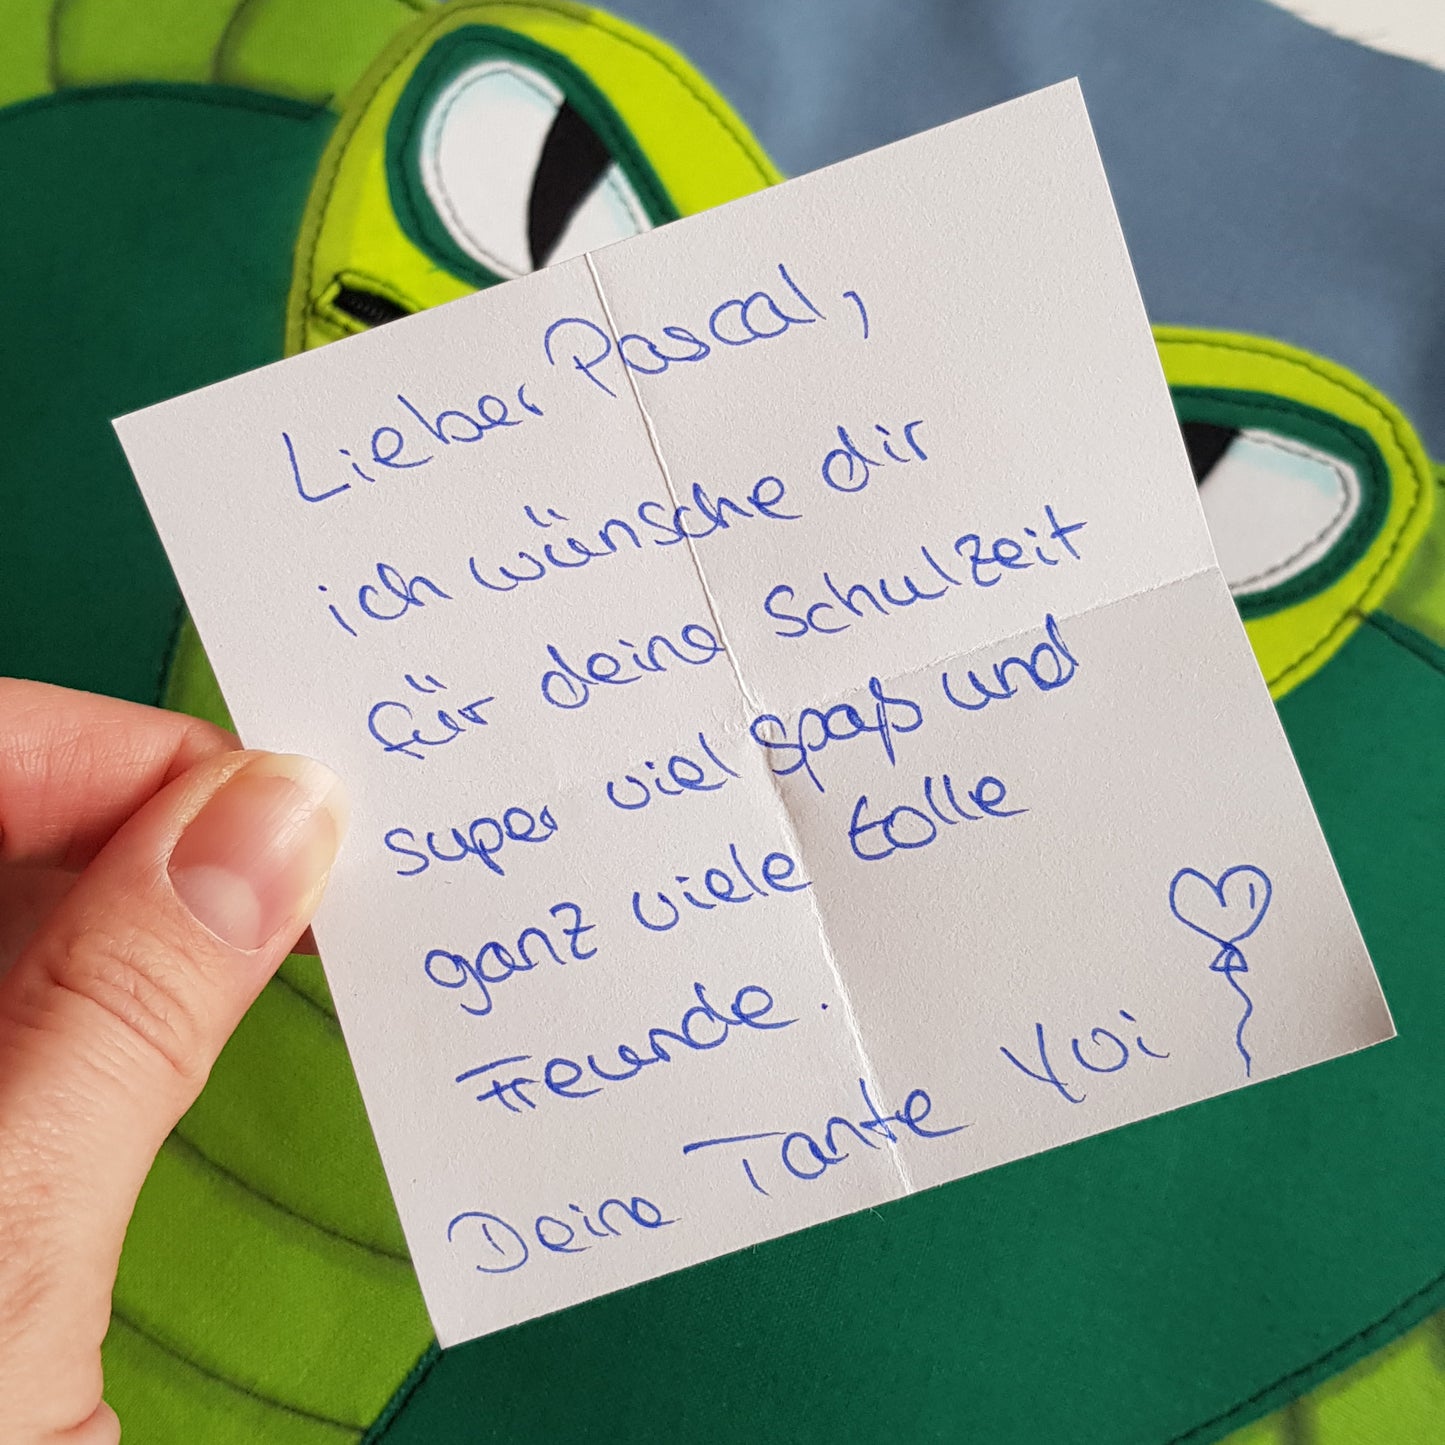 Lieber Pascal,
ich wünsche dir
für deine Schulzeit
super viel spaß und
ganz viele tolle
Freunde.
Deine Tante Yvi